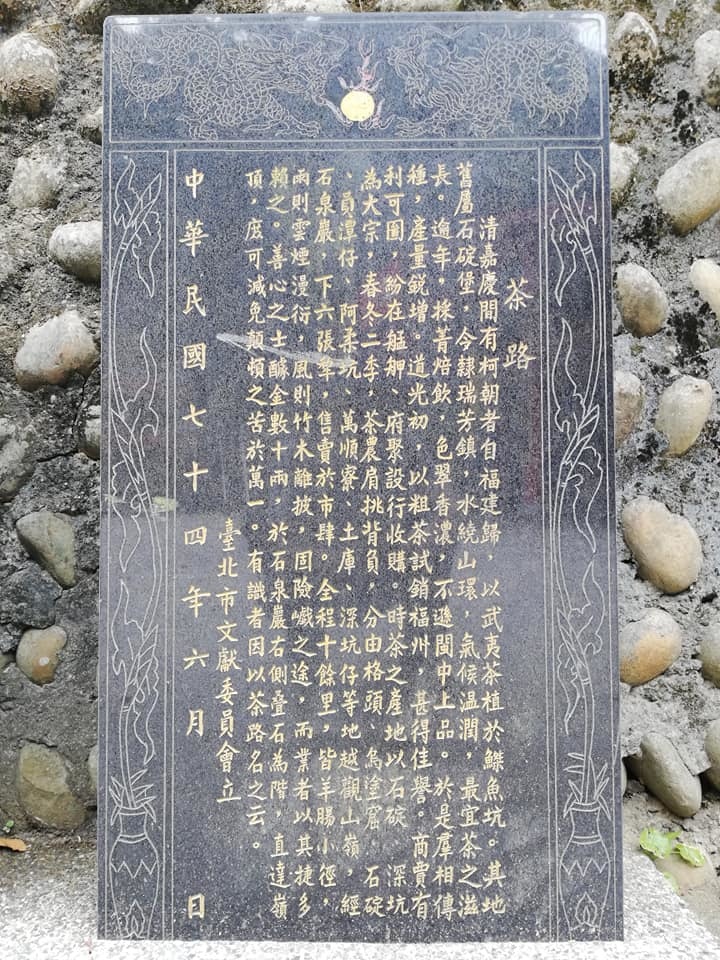 茶路
清嘉慶間有柯朝者自福建歸，以武夷茶植於鰶魚坑。其地
舊屬石碇堡，今隸瑞芳鎮，水繞山環，氣候温潤，最宜茶之滋
長。逾年，採菁焙飲，色翠香濃，不遜閩中上品。於是羣相傳
種，產量銳增。道光初，以粗茶試銷福州，甚得佳譽。商賈有
利可圖，紛在艋舺、府聚設行收購。時茶之產地以石碇、深坑
為大宗，春冬二季，茶農肩挑背負，分由格頭、烏塗窟、石碇
、員潭仔、阿柔坑、萬順寮、土庫、深坑仔等地越觀山嶺，經
石泉巖，下六張犂，售賣於市肆。全程十餘里，皆羊腸小徑，
雨則雲煙漫衍，風則竹木離披，固險巇之途，而業者以其捷多
賴之。善心之士醵金數十兩，於石泉巖右側疊石為階，直達嶺
頂，庶可減免顛頓之苦於萬一。有識者因以茶路名之云。
臺北市文獻委員會立
中華民國七十四年六月　日